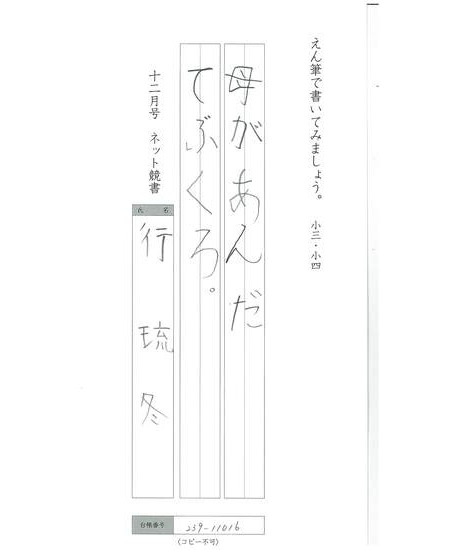 えん筆で書いてみましょう。 小三・小四
母があんだ
てぶくろ。
十二月号 ネット競書
氏名
行琉冬
台帳番号 239-11016
(コピー不可)